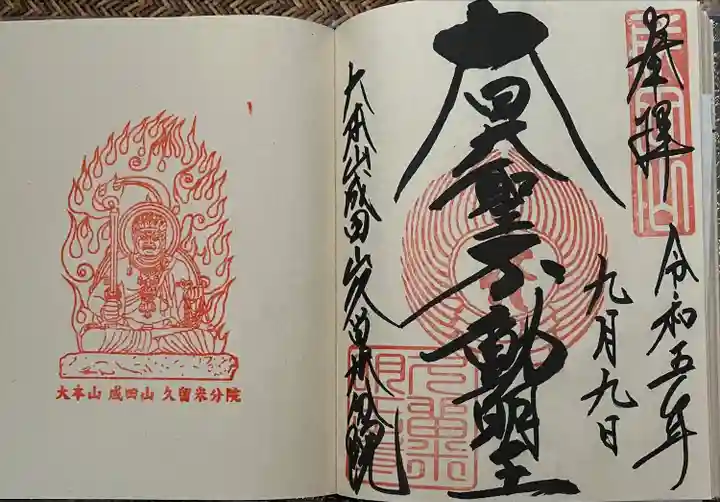 奉拝
令和五年
九月九日
大日大聖不動明王
大本山成田山久留米
大本山 成田山 久留米分院